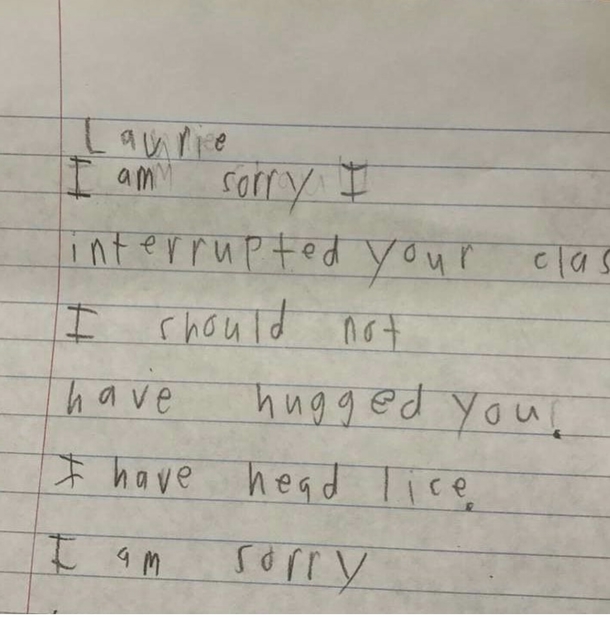 Laurie
I am sorry I
interrupted your clas
I should not
have hugged you.
I have head lice.
I am sorry